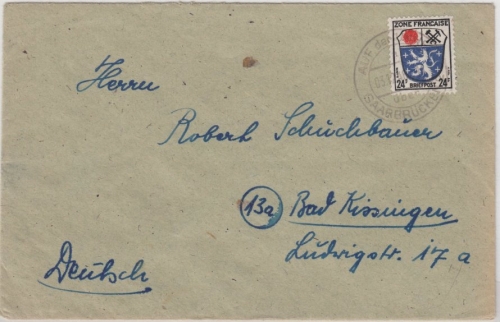 ZONE FRANÇAISE
24 BRIEFPOST 24
(SAARBRÜCKEN)
Herrn
Robert Schuchbauer
13a Bad Kissingen
Ludwigstr. 17 a
Deutsch